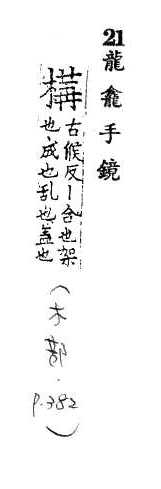 21龍龕手鏡
構
古候反丨合也架
也成也乱也盖也
(木部.
p.382)